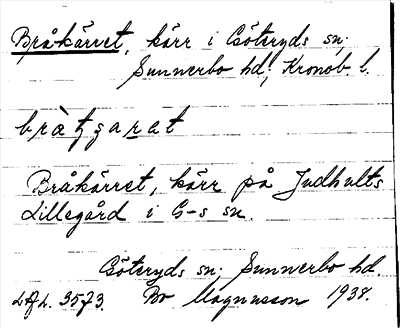 Bråkärret, kärr i Göteryds sn;
Sunnerbo hd; Kronob. l.
Bråkärret, kärr på Judhults
Lillegård i G-s sn.
Göteryds sn; Sunnerbo hd.
3573. Bo Magnusson 1938.